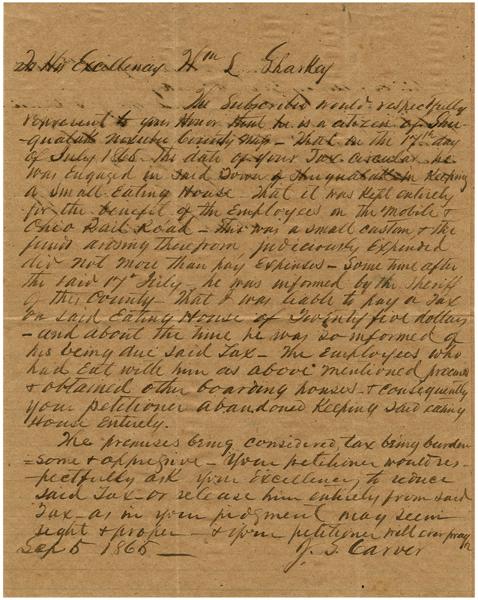 To His Excellency Wm L Sharkey
The Subscriber would respectfully
represent to your Honor that he is a citizen of Shu-
qualak Noxubee County Mip - That on the 17th day
of July 1865 the date of your Tax circular he
was Engaged in Said Town of Shuqualak in Keeping
a Small Eating House - That it was Kept entirely
for the benefit of the Employees on the Mobile &
Ohio Rail Road - This was a small custom & the
funds arising therefrom judiciously Expended
did not more than pay Expenses - Some time after
the said 17th July he was informed by the Sheriff
of this County - That he was liable to pay a Tax
on said Eating House of Twenty five dollars
- and about the time he was so informed of
his being due said Tax - the Employees who
had Eat with him as above mentioned
& obtained other boarding houses - & consequently
your petitioner abandoned Keeping said eating
House Entirely.
The premises being considered, tax being burden
=some & oppressive - Your petitioner would res-
-pectfully ask your Excellency to reduce
said Tax - or release him entirely from said
Tax - as in your judgment may seem
right & proper - & your petitioner will ever pray
Sep 5 1865 J. S. Carver